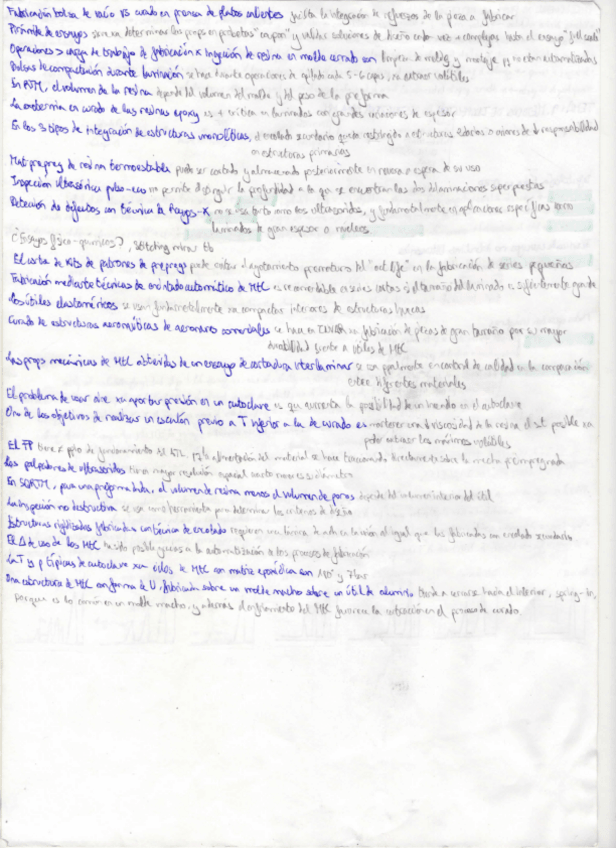 Fabricación bolsa de vacío VS curado en prensa de platos calientes facilita la integración de refuerzos de la pieza a fabricar
Pirámide de ensayos sirve xa determinar las props en probetas "coupon" y validar soluciones de diseño cada vez + complejas hasta el ensayo "full scale"
Operaciones > carga de trabajo de fabricación x inyección de resina en molde cerrado son limpieza de moldes y montaje, ya no están automatizadas
Bolsas de compactación durante laminación se hace durante operaciones de apilado cada 5-6 capas, xa extraer volátiles
En RTM, el volumen de la resina depende del volumen del molde y del peso de la preforma
La exotermia en curado de las resinas epoxy es + crítica en laminados con grandes variaciones de espesor
En los 3 tipos de integración de estructuras monolíticas, el encolado secundario queda restringido a estructuras
en estructuras primarias
Mat prepreg de resina termoestable puede ser cortado y almacenado posteriormente en nevera a espera de su uso
Inspección ultrasónica pulso-eco no permite distinguir la profundidad a la que se encuentran las dos delaminaciones superpuestas
Detección de defectos con técnica de Rayos-X, no se usa tanto como los ultrasonidos, y fundamentalmente en aplicaciones específicas como
laminados de gran espesor o núcleos
¿Ensayos físico-químicos?, stitching mirar
El corte de kits de patrones de prepreg puede evitar el agotamiento prematuro del "out life" en la fabricación de series pequeñas
Fabricación mediante técnicas de encintado automático de MtC es recomendable en series cortas si el tamaño del laminado es suficientemente grande
Los útiles elastoméricos se usan fundamentalmente xa compactar interiores de estructuras huecas
Curado de estructuras aeronáuticas de aeronaves comerciales se hace en INVAR xa fabricación de piezas de gran tamaño por su mayor
durabilidad frente a útiles de MtC
Las props mecánicas de MtC obtenidas de un ensayo de cortadura interlaminar se usan en control de calidad en la comparación
entre diferentes materiales
El problema de usar aire xa aportar presión en un autoclave es q aumenta la posibilidad de un incendio en el autoclave
Uno de los objetivos de realizar un escalón previo a T inferior a la de curado es mantener una viscosidad de la resina el sufi. posible xa
poder extraer los máximos volátiles
El FP tiene x ppio de funcionamiento del ATL, la alimentación del material se hace traccionando directamente sobre la mecha preimpregnada
Los palpadores de ultrasonidos tienen mayor resolución espacial cuanto menor es su diámetro
En SQRTM, para una preforma dada, el volumen de resina menos el volumen de poros depende del volumen interior del útil
La inspección no destructiva se usa como herramienta para determinar los criterios de diseño
Estructuras rigidizadas fabricadas con técnica de coencolado requieren una lámina de adhesivo al igual que las fabricadas con encolado secundario
El Δ de uso de los MtC ha sido posible gracias a la automatización de los procesos de fabricación
La T y p típicas de autoclave xa ciclos de MtC con matriz epoxídica son 180° y 7 bar
Una estructura de MtC con forma de U, fabricada sobre un molde macho sobre un útil de aluminio, tiende a cerrarse hacia el interior, spring-in,
porque es lo común en un molde macho, y además el enfriamiento del MtC favorece la extracción en el proceso de curado.